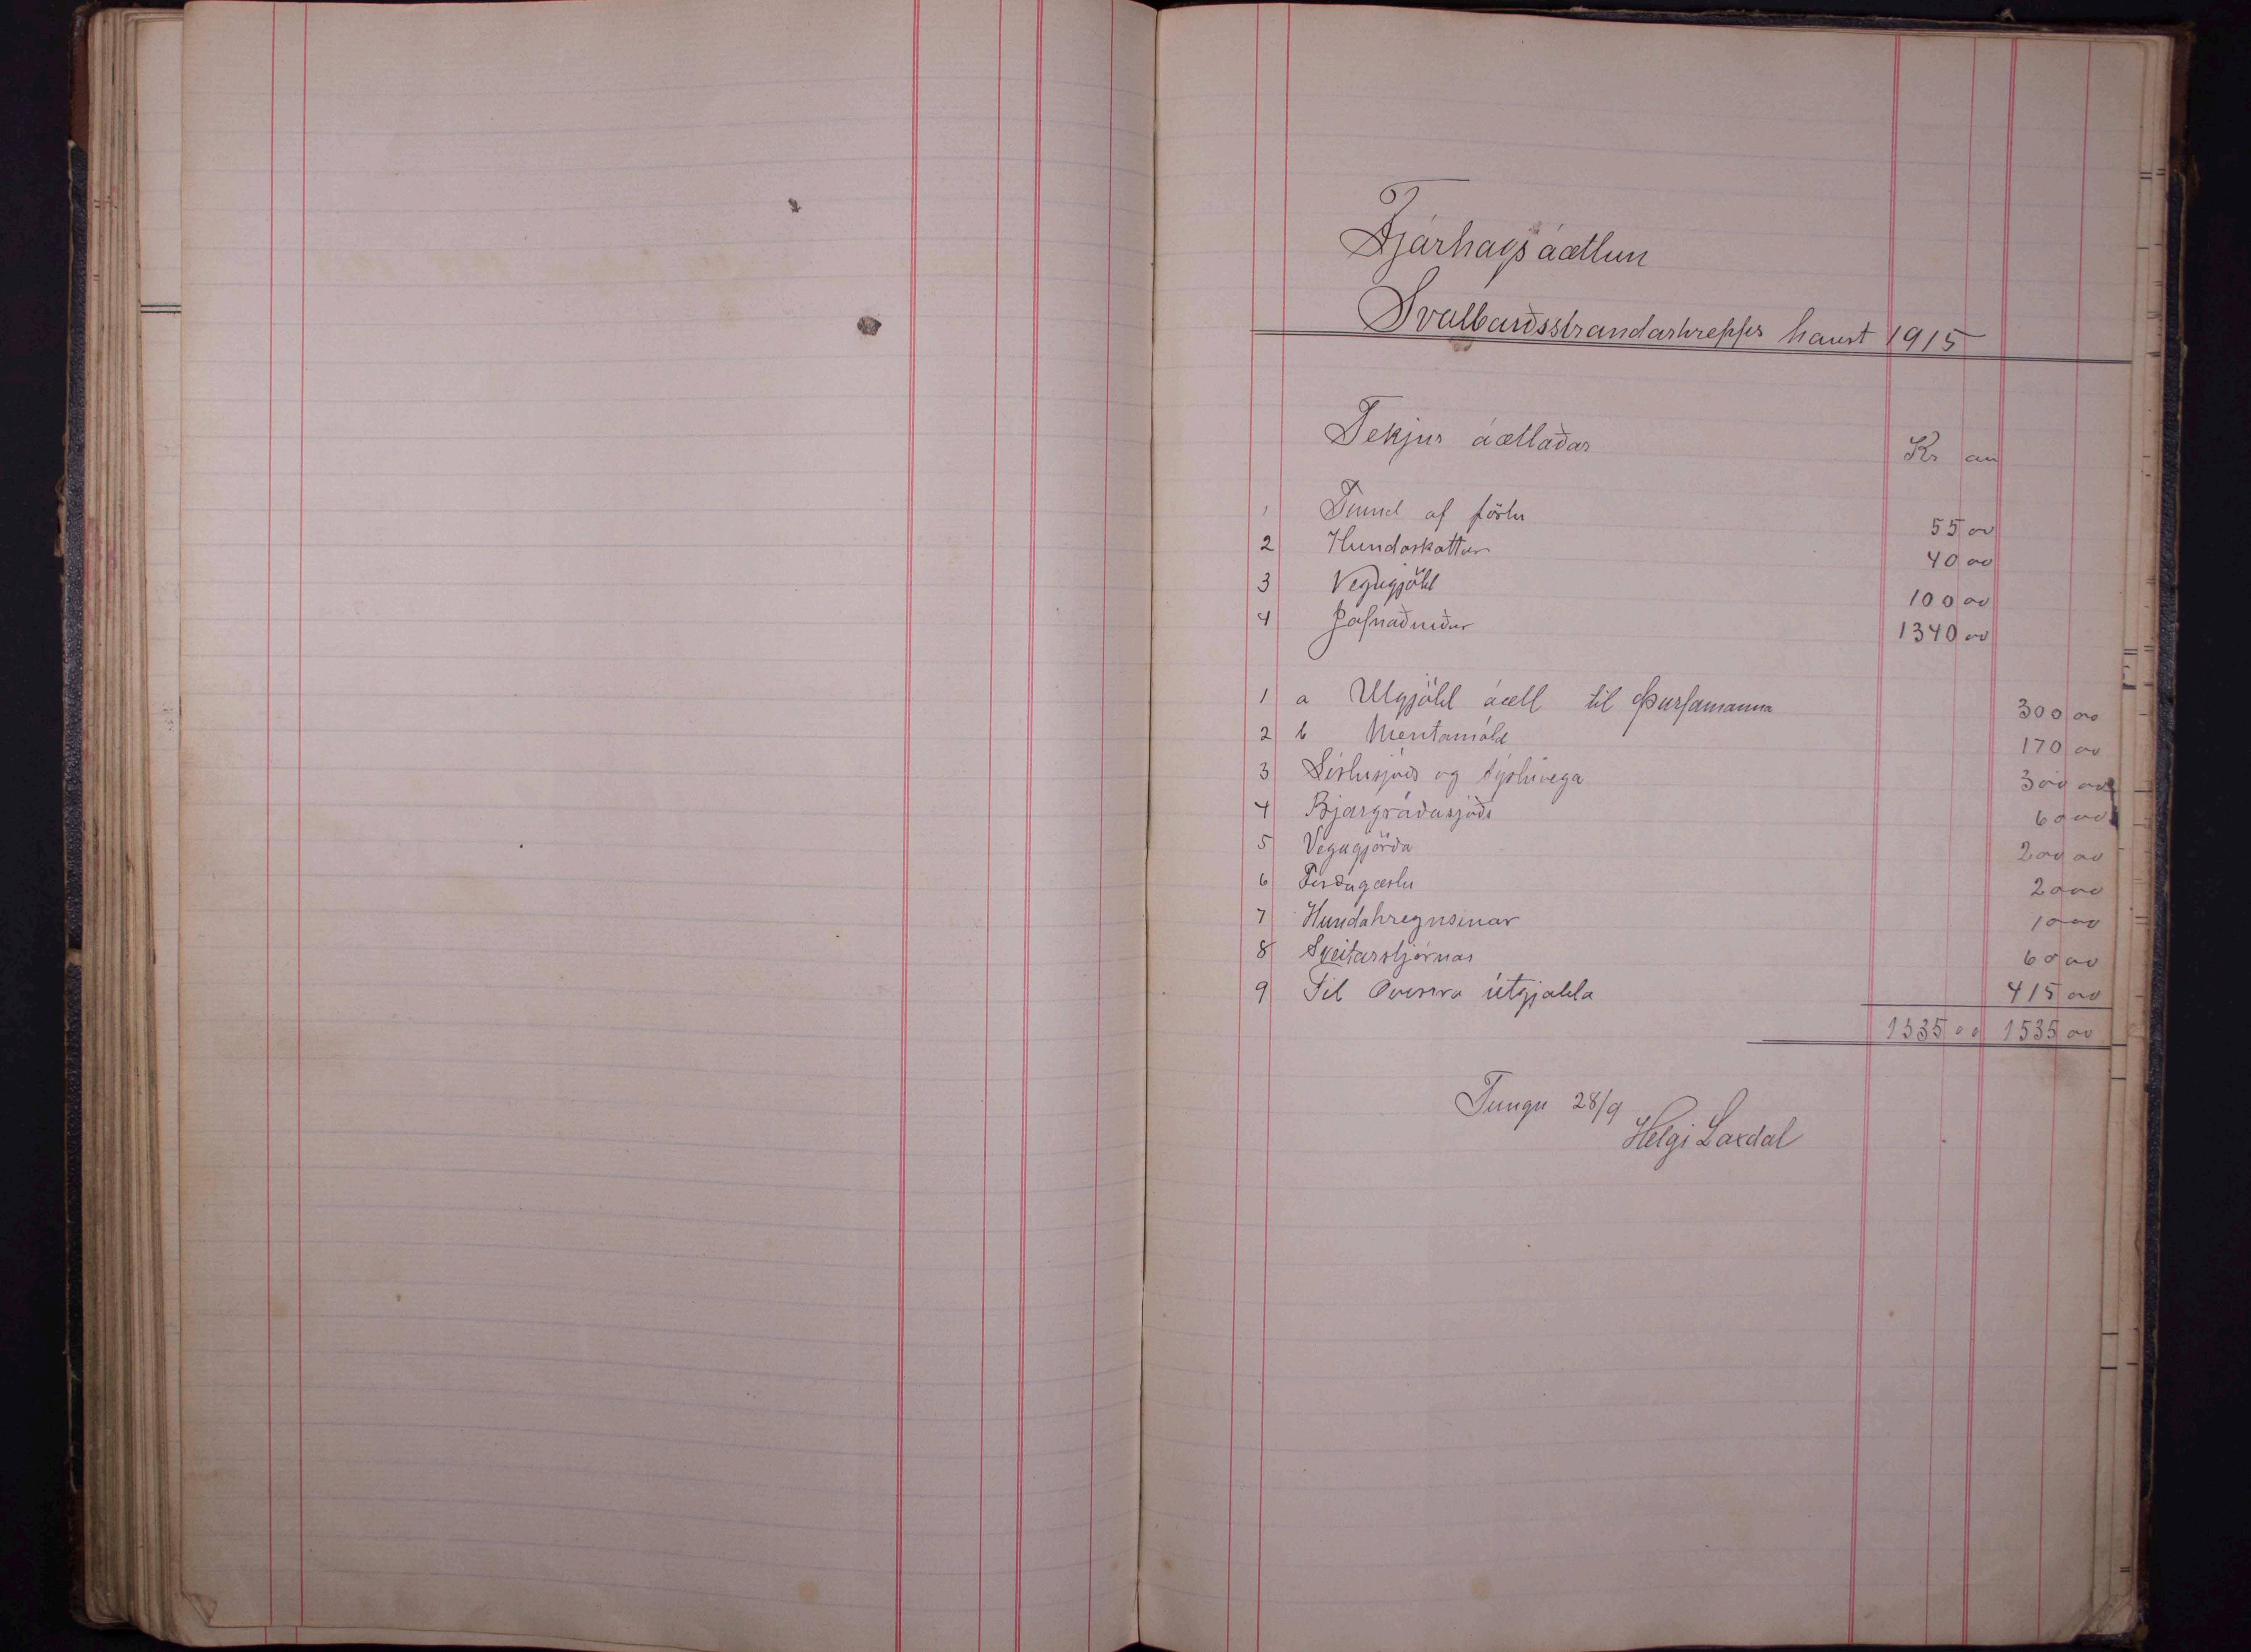 Fjárhagsáætlun
Svalbarðsstrandarhrepps haust 1915
Tekjur áætlaðar Kr au
1 Tiund af föstu 55 00
2 Hundaskattur 40 00
3 Vegagjöld 100 00
4 Jafnaðniður 1340 00
1 a Utgjöld áætl til þurfamanna 300 00
2 b Mentamála 170 00
3 Sislusjóðs og sýsluvega 300 00
4 Bjargráðasjóðs 60 00
5 Vegagjörða 200 00
6 Ferðagæslu 20 00
7 Hundahregnsinar 10 00
8 Sveitarstjórnar 60 00
9 Til útgjalda 415 00
1535 00 1535 00
Tungu 28/9
Helgi Laxdal